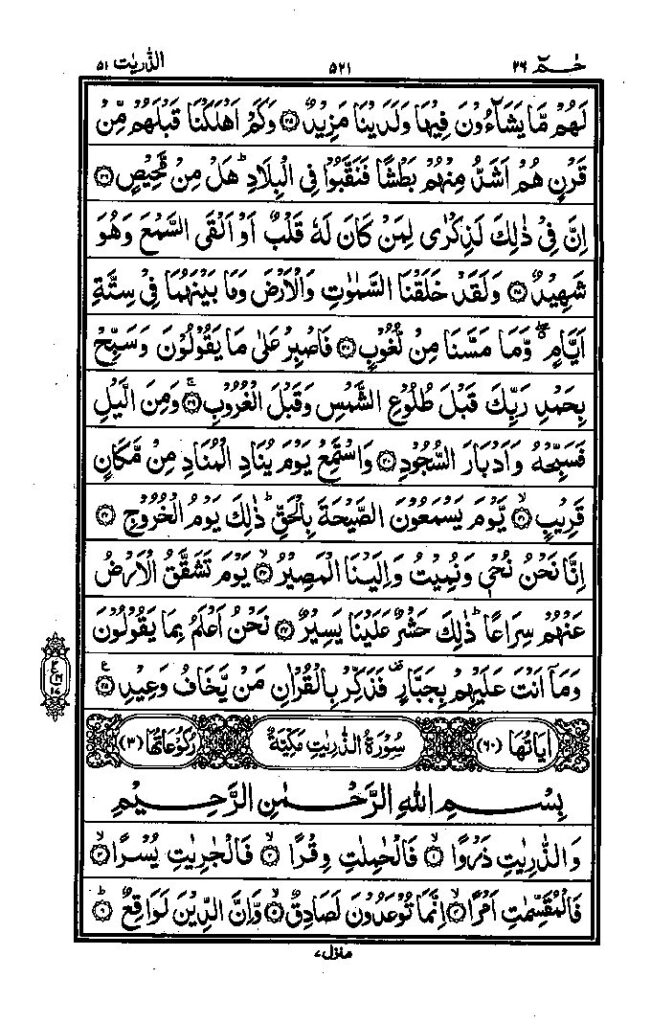 حٰمٓ ٢٦ ٥٢١ الذّٰریٰت ٥١
لَهُمْ مَّا يَشَآءُوْنَ فِيْهَا وَلَدَيْنَا مَزِيْدٌ ﴿٣٥﴾ وَكَمْ اَهْلَكْنَا قَبْلَهُمْ مِّنْ
قَرْنٍ هُمْ اَشَدُّ مِنْهُمْ بَطْشًا فَنَقَّبُوْا فِى الْبِلَادِ ؕ هَلْ مِنْ مَّحِيْصٍ ﴿٣٦﴾
اِنَّ فِىْ ذٰلِكَ لَذِكْرٰى لِمَنْ كَانَ لَهٗ قَلْبٌ اَوْ اَلْقَى السَّمْعَ وَهُوَ
شَهِيْدٌ ﴿٣٧﴾ وَلَقَدْ خَلَقْنَا السَّمٰوٰتِ وَالْاَرْضَ وَمَا بَيْنَهُمَا فِىْ سِتَّةِ
اَيَّامٍ ۖ وَّمَا مَسَّنَا مِنْ لُّغُوْبٍ ﴿٣٨﴾ فَاصْبِرْ عَلٰى مَا يَقُوْلُوْنَ وَسَبِّحْ
بِحَمْدِ رَبِّكَ قَبْلَ طُلُوْعِ الشَّمْسِ وَقَبْلَ الْغُرُوْبِ ۚ﴿٣٩﴾ وَمِنَ الَّيْلِ
فَسَبِّحْهُ وَاَدْبَارَ السُّجُوْدِ ﴿٤٠﴾ وَاسْتَمِعْ يَوْمَ يُنَادِ الْمُنَادِ مِنْ مَّكَانٍ
قَرِيْبٍ ۙ﴿٤١﴾ يَّوْمَ يَسْمَعُوْنَ الصَّيْحَةَ بِالْحَقِّ ؕ ذٰلِكَ يَوْمُ الْخُرُوْجِ ﴿٤٢﴾
اِنَّا نَحْنُ نُحْىٖ وَنُمِيْتُ وَاِلَيْنَا الْمَصِيْرُ ۙ﴿٤٣﴾ يَوْمَ تَشَقَّقُ الْاَرْضُ
عَنْهُمْ سِرَاعًا ؕ ذٰلِكَ حَشْرٌ عَلَيْنَا يَسِيْرٌ ﴿٤٤﴾ نَحْنُ اَعْلَمُ بِمَا يَقُوْلُوْنَ
وَمَآ اَنْتَ عَلَيْهِمْ بِجَبَّارٍ ۟ فَذَكِّرْ بِالْقُرْاٰنِ مَنْ يَّخَافُ وَعِيْدِ ﴿٤٥﴾ ع
اٰيَاتُهَا (٦٠) سُوْرَةُ الذّٰرِيٰتِ مَكِّيَّةٌ رُكُوْعَاتُهَا (٣)
بِسْمِ اللهِ الرَّحْمٰنِ الرَّحِيْمِ
وَالذّٰرِيٰتِ ذَرْوًا ۙ﴿١﴾ فَالْحٰمِلٰتِ وِقْرًا ۙ﴿٢﴾ فَالْجٰرِيٰتِ يُسْرًا ۙ﴿٣﴾
فَالْمُقَسِّمٰتِ اَمْرًا ۙ﴿٤﴾ اِنَّمَا تُوْعَدُوْنَ لَصَادِقٌ ۙ﴿٥﴾ وَّاِنَّ الدِّيْنَ لَوَاقِعٌ ؕ﴿٦﴾
منزل ٧